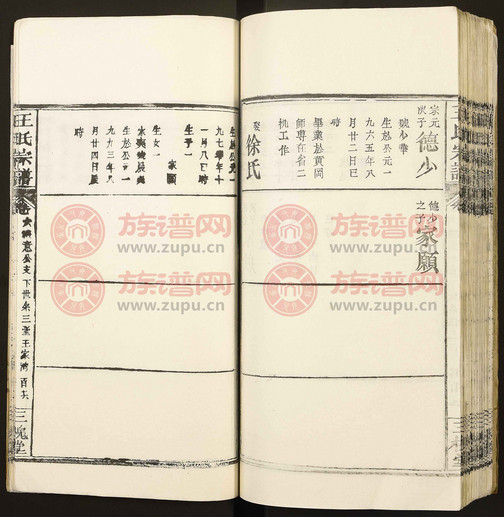 宗元
次子
德少
號少華
生於公元一
九六五年八
月廿二日巳
時
畢業於黄岡
師專在省二
机工作
娶
徐氏
德少
之子
家願
生於公元一
九七
一月八日
時
生子一
家願
生女一
生於公元一
九九三年八
月廿四日辰
時
王氏宗譜
三槐堂
族谱网
www.zupu.cn
族谱网
www.zupu.cn
族谱网
www.zupu.cn
族谱网
www.zupu.cn